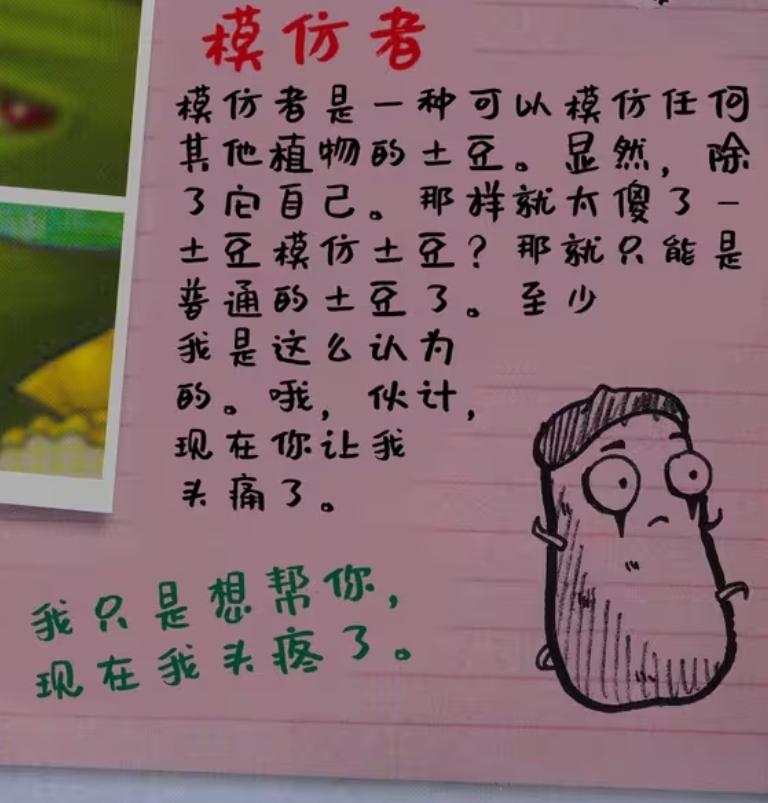 模仿者
模仿者是一种可以模仿任何
其他植物的土豆。显然，除
了它自己。那样就太傻了－
土豆模仿土豆？那就只能是
普通的土豆了。至少
我是这么认为
的。哦，伙计，
现在你让我
头痛了。
我只是想帮你，
现在我头疼了。